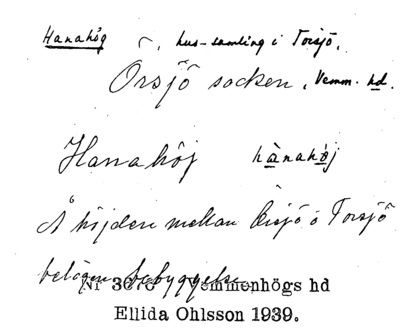 Hanahög , hus-samling i Torsjö,
Orsjö socken, Vemm. hd.
Hanahöj hànahöj
Å höjden mellan Örsjö o Torsjö
belägen bebyggelse.
Nr Vemmenhögs hd
Ellida Ohlsson 1939.